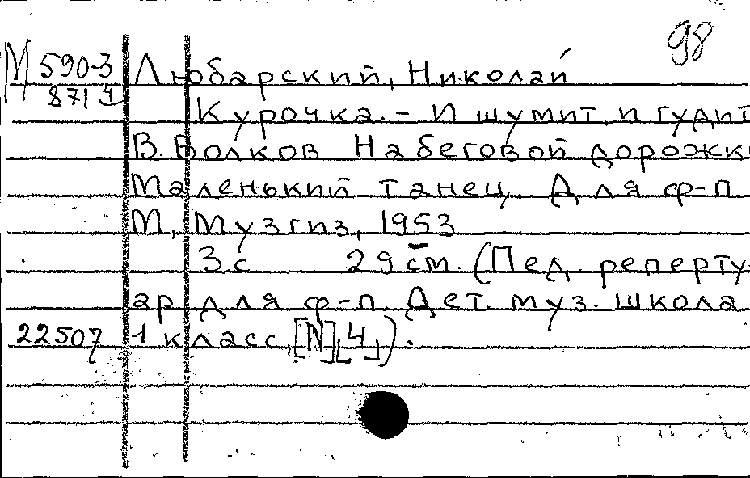 98
М 590-3 Любарский, Николай
871 Курочка. – И шумит, и гудит
В. Волков На беговой дорожк
Маленький танец, Для ф-п
М, Музгиз, 1953
3 с 29 см. (Пед. реперту-
ар для ф-п. Дет. муз. школа
22507 1 класс, [N] [4]).